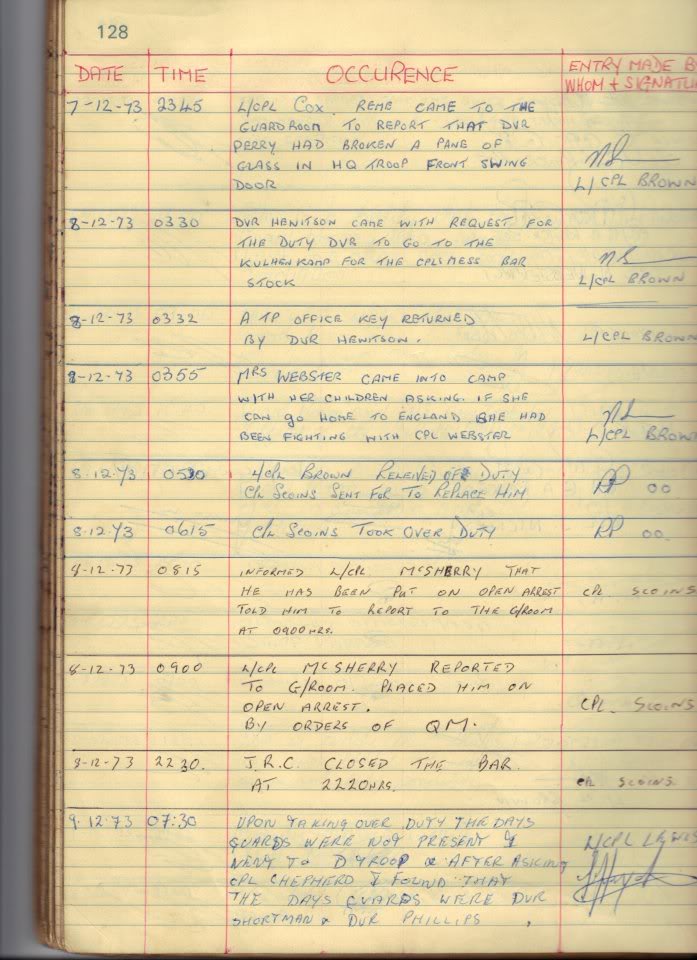 128
DATE TIME OCCURENCE ENTRY MADE B
WHOM + SIGNATU
7-12-73 2345 L/CPL COX. REME CAME TO THE
GUARDROOM TO REPORT THAT DVR
PERRY HAD BROKEN A PANE OF
GLASS IN HQ TROOP FRONT SWING
DOOR
L/CPL BROWN
8-12-73 0330 DVR HENITSON CAME WITH REQUEST FOR
THE DUTY DVR TO GO TO THE
KULHENKAMP FOR THE CPLS MESS BAR
STOCK
L/CPL BROWN
8-12-73 0332 A TP OFFICE KEY RETURNED
BY DVR HENITSON.
L/CPL BROWN
8-12-73 0355 MRS WEBSTER CAME INTO CAMP
WITH HER CHILDREN ASKING. IF SHE
CAN go HOME TO ENGLAND SHE HAD
BEEN FIGHTING WITH CPL WEBSTER
L/CPL BROWN
8.12.73 L/CPL BROWN RELEIVED OFF DUTY
CPL SCOINS SENT FOR TO REPLACE HIM
RP OO
8.12.73 0615 CPL SCOINS TOOK OVER DUTY RP OO.
8-12-73 0815 INFORMED L/CPL McSHERRY THAT
HE HAS BEEN PUT ON OPEN ARREST CPL SCOINS
TOLD HIM TO REPORT TO THE G/ROOM
AT 0900 HRS.
8-12-73 0900 L/CPL McSHERRY REPORTED
TO G/ROOM. PLACED HIM ON
OPEN ARREST. CPL. SCOINS
BY ORDERS OF QM.
8-12-73 2230. J.R.C. CLOSED THE BAR.
AT 2220HRS. CPL SCOINS.
9.12.73 07:30 UPON TAKING OVER DUTY THE DAYS
GUARDS WERE NOT PRESENT I L/CPL LEWIS
WENT TO D TROOP & AFTER ASKING
CPL CHEPHERD I FOUND THAT
THE DAYS GUARDS WERE DVR
SHORTMAN & DVR PHILLIPS